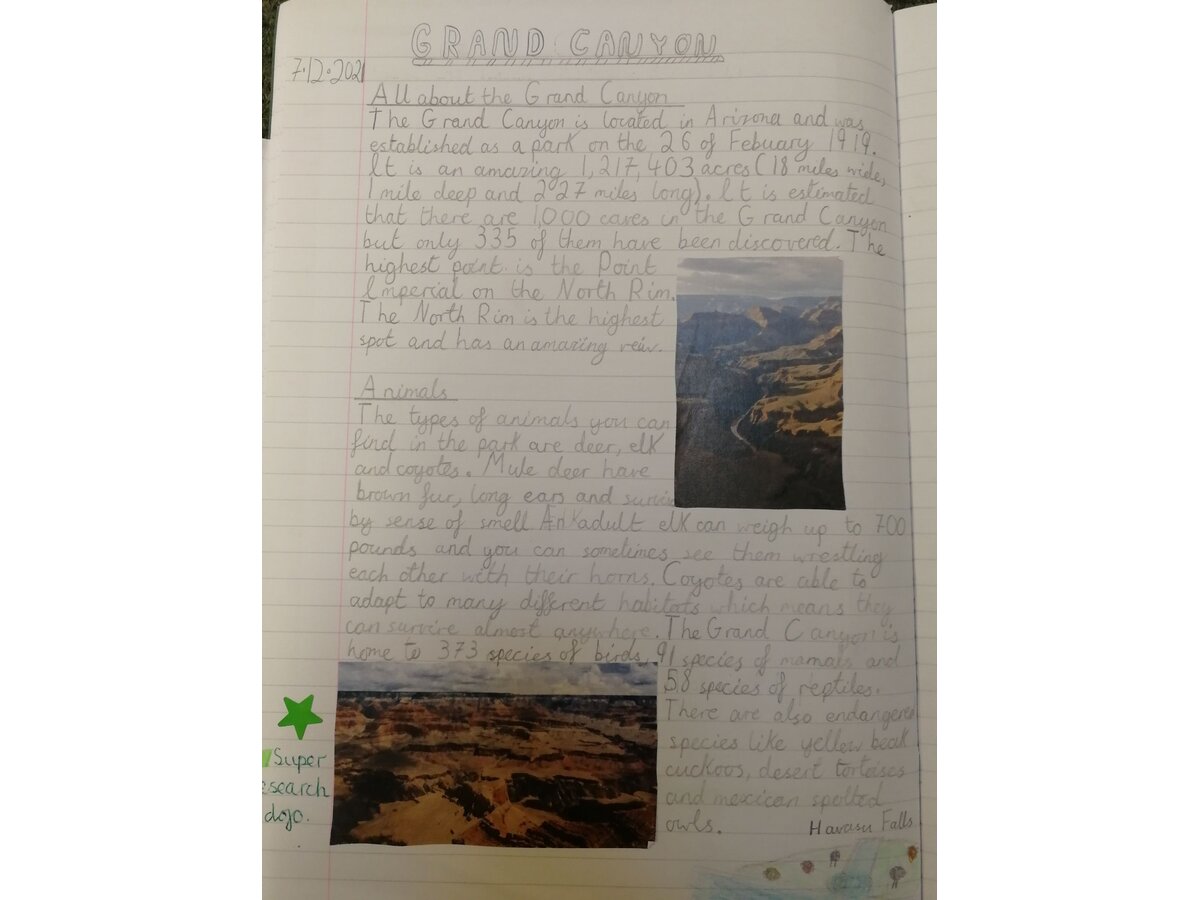 GRAND CANYON
7.12.2021
All about the Grand Canyon
The Grand Canyon is located in Arizona and was
established as a park on the 26 of Febuary 1919.
It is an amazing 1,217,403 acres (18 miles wide,
1 mile deep and 227 miles long). It is estimated
that there are 1,000 caves in the Grand Canyon
but only 335 of them have been discovered. The
highest point is the Point
Imperial on the North Rim.
The North Rim is the highest
spot and has an amazing veiw.
Animals
The types of animals you can
find in the park are deer, elk
and coyotes. Mule deer have
brown fur, long ears and
by sense of smell. An adult elk can weigh up to 700
pounds and you can sometimes see them wrestling
each other with their horns. Coyotes are able to
adapt to many different habitats which means they
can survive almost anywhere. The Grand Canyon is
home to 373 species of birds, 91 species of mamals and
58 species of reptiles.
There are also endangered
species like yellow beak
cuckoos, desert tortoises
and mexican spotted
owls.
Havasu Falls
Super
esearch
dojo.